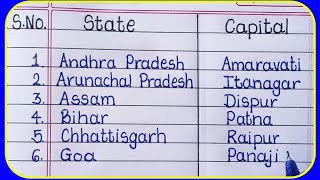 S.No. State Capital
1. Andhra Pradesh Amaravati
2. Arunachal Pradesh Itanagar
3. Assam Dispur
4. Bihar Patna
5 Chhattisgarh Raipur
6. Goa Panaji